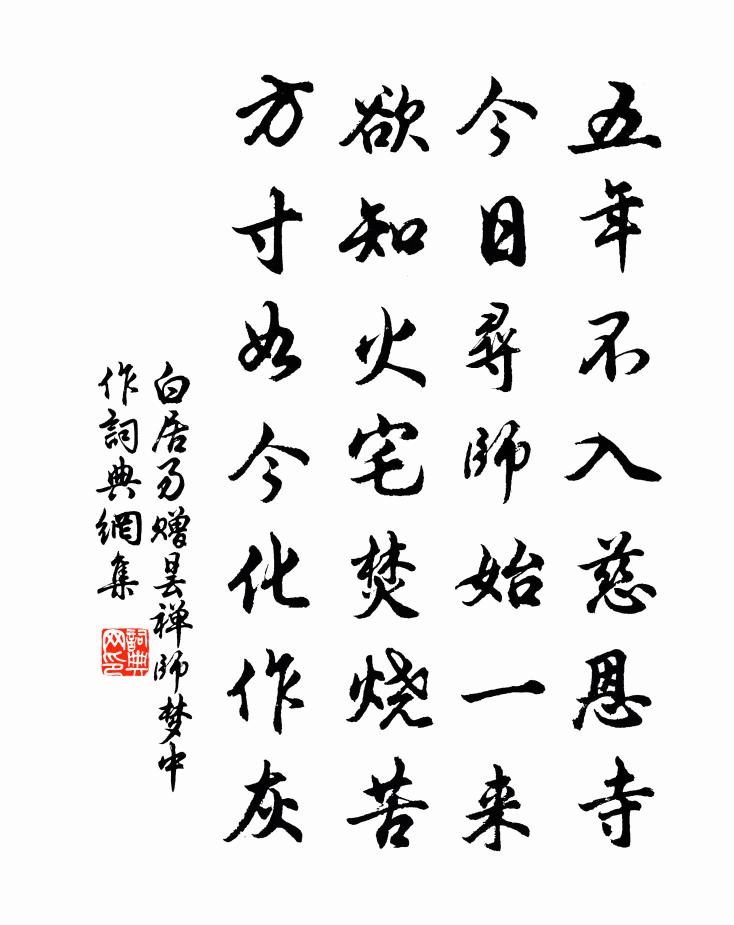 五年不入慈恩寺
今日尋師始一来
欲知火宅焚烧苦
方寸如今化作灰
白居易赠昙禅师梦中
作詞典網集
詞典网印